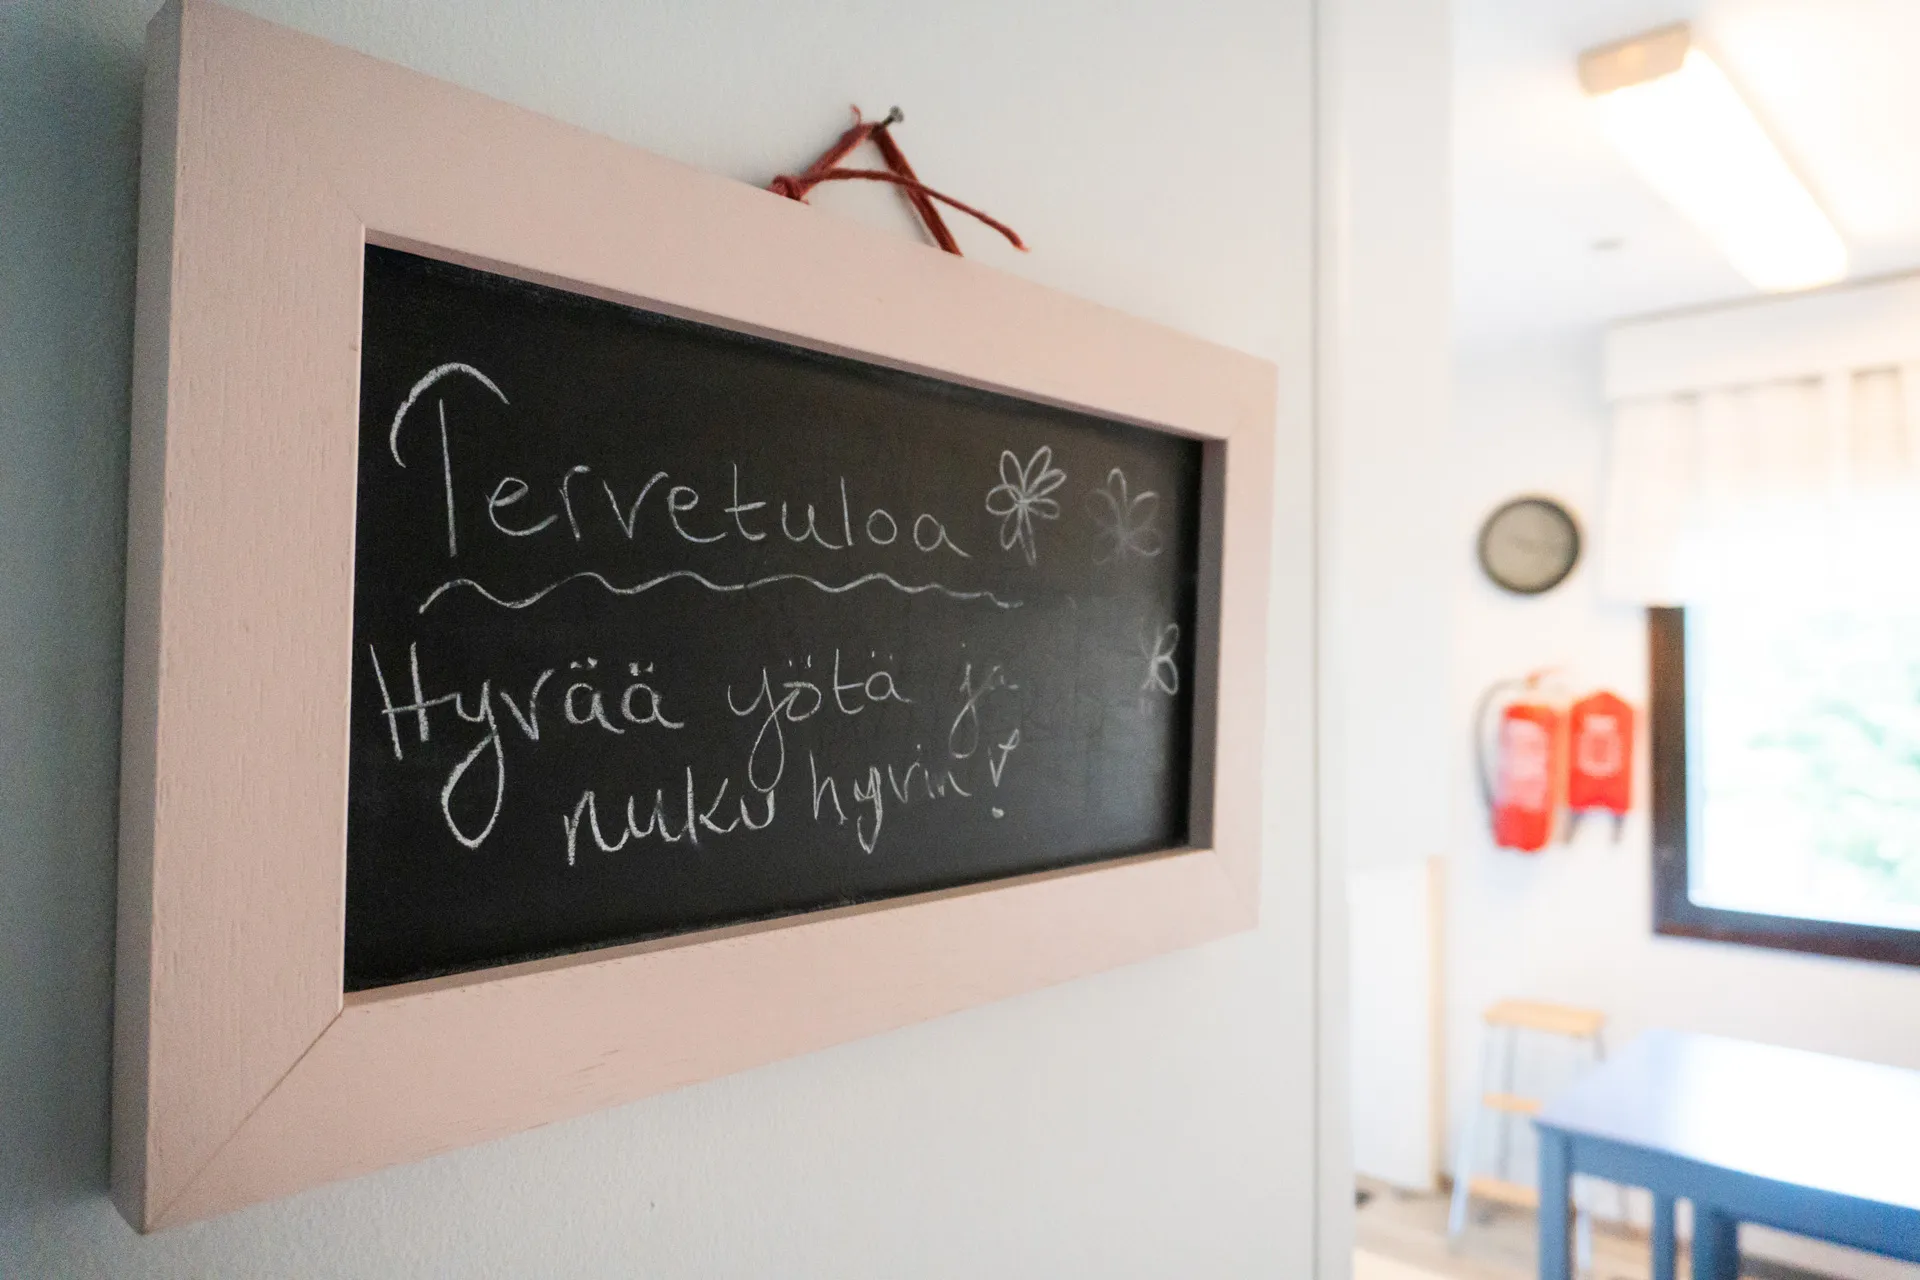 Tervetuloa
Hyvää yötä ja
nuku hyvin!